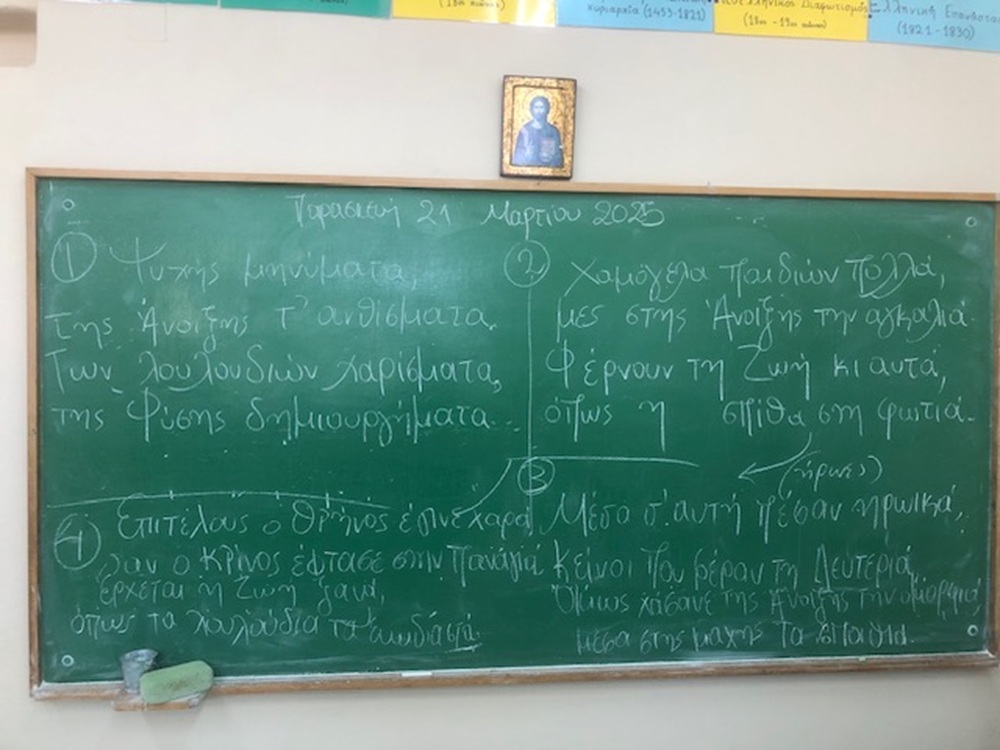 (18ος αιώνας)
κυριαρχία (1453-1821)
Νεοελληνικός Διαφωτισμός
(18ος - 19ος αιώνας)
Ελληνική Επανάσταση
(1821 - 1830)
Παρασκευή 21 Μαρτίου 2025
① Ψυχής μηνύματα,
της Άνοιξης τ' ανθίσματα.
Των λουλουδιών χαρίσματα,
της Φύσης δημιουργήματα...
② Χαμόγελα παιδιών πολλά,
μες στης Άνοιξης την αγκαλιά.
Φέρνουν τη Ζωή κι αυτά,
όπως η σπίθα στη φωτιά.
③ (ήρωες)
Μέσα σ' αυτή πέσαν ηρωικά,
κείνοι που φέραν τη Λευτεριά
Όμως χάσανε της Άνοιξης την ομορφιά,
μέσα στης μάχης τα σπαθιά.
④ Επιτέλους ο θρήνος έγινε χαρά
σαν ο κρίνος έφτασε στην Παναγιά
έρχεται η Ζωή ξανά,
όπως τα λουλούδια τα ευωδιαστά.